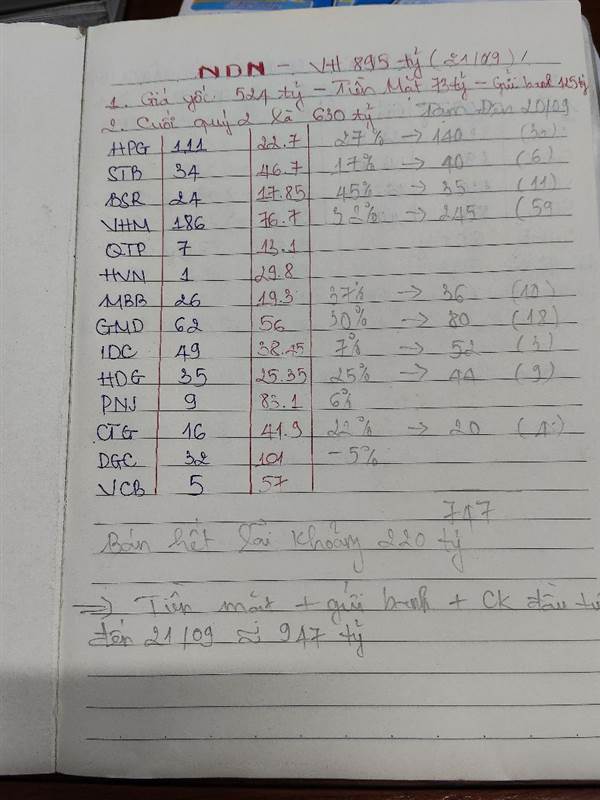 NDN - VH 895 tỷ (21/09)
1. Giá gốc 524 tỷ - Tiền Mặt 73 tỷ - Gửi bank 125 tỷ
2. Cuối quý 2 là 630 tỷ
20/09
HPG 111 22.7 27% → 140 (30)
STB 34 46.7 17% → 40 (6)
BSR 24 17.85 45% → 35 (11)
VHM 186 76.7 32% → 245 (59
QTP 7 13.1
HVN 1 29.8
MBB 26 19.3 37% → 36 (10)
GMD 62 56 30% → 80 (18)
IDC 49 38.45 7% → 52 (3)
HDG 35 25.35 25% → 44 (9)
PNJ 9 83.1 6%
CTG 16 41.9 22% → 20
DGC 32 101 -5%
VCB 5 57
747
Bán hết lãi khoảng 220 tỷ
=> Tiền mặt + gửi bank + CK đầu tư
đến 21/09 ≈ 947 tỷ